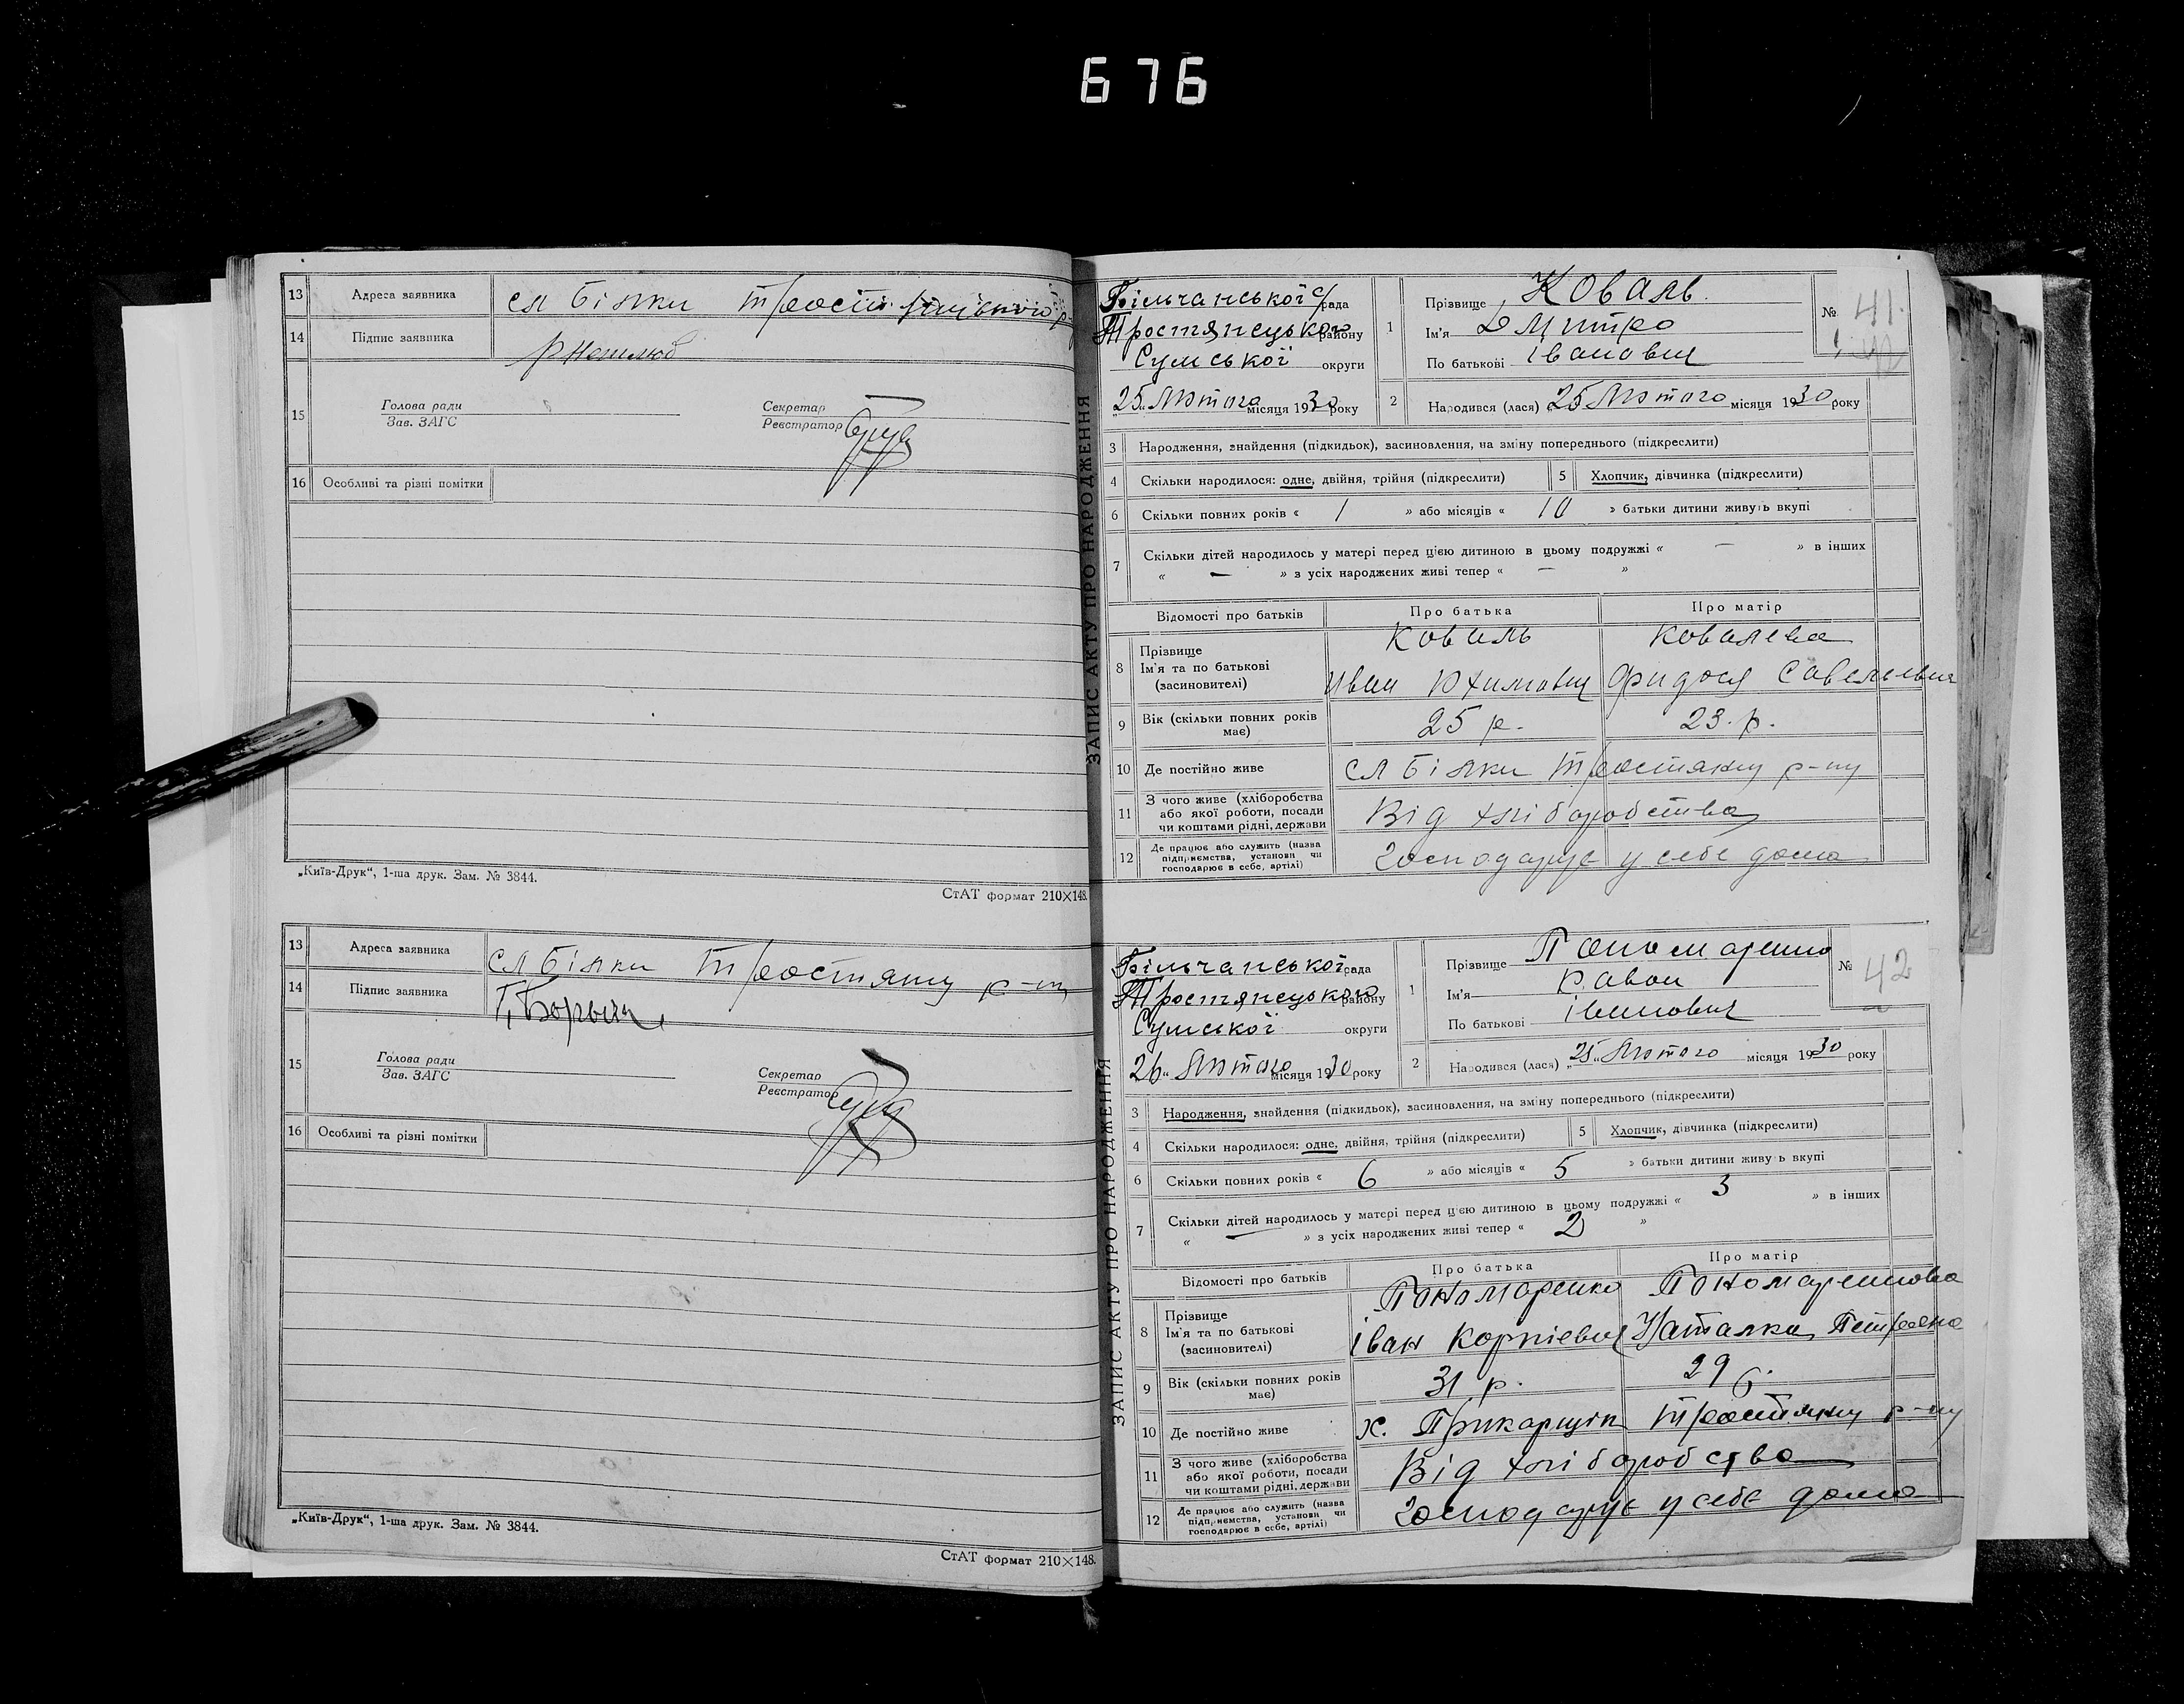 676
13 Адреса заявника сл Білки
14 Підпис заявника
15 Голова ради Секретар
Зав. ЗАГС Реєстратор
16 Особливі та різні помітки
„Київ-Друк“, 1-ша друк. Зам. № 3844.
СтАТ формат 210×148.
13 Адреса заявника сл Білки Тростянц р-ну
14 Підпис заявника
15 Голова ради Секретар
Зав. ЗАГС Реєстратор
16 Особливі та різні помітки
„Київ-Друк“, 1-ша друк. Зам. № 3844.
СтАТ формат 210×148.
ЗАПИС АКТУ ПРО НАРОДЖЕННЯ
Більчанської с/рада
Тростянецького району
Сумської округи
„25„ Лютого місяця 1930 року
1 Прізвище Коваль
Ім'я Дмитро
По батькові Іванович
№ 41.
2 Народився (лася) „25 Лютого місяця 1930 року
3 Народження, знайдення (підкидьок), засиновлення, на зміну попереднього (підкреслити)
4 Скільки народилося: одне, двійня, трійня (підкреслити) 5 Хлопчик, дівчинка (підкреслити)
6 Скільки повних років « 1 » або місяців « 10 » батьки дитини живуть вкупі
7 Скільки дітей народилось у матері перед цією дитиною в цьому подружжі « — » в інших
« — » з усіх народжених живі тепер « — »
Відомості про батьків Про батька Про матір
8 Прізвище Коваль Ковалева
Ім'я та по батькові Иван Юхимович
(засиновителі)
9 Вік (скільки повних років має) 25 р. 23. р.
10 Де постійно живе сл Білки Тростянц р-ну
11 З чого живе (хліборобства
або якої роботи, посади
чи коштами рідні, держави Від хліборобства
12 Де працює або служить (назва
підприємства, установи чи
господарює в себе, артілі) Господарує у себе дома
ЗАПИС АКТУ ПРО НАРОДЖЕННЯ
Більчанської рада
Тростянецького району
Сумської округи
„26„ Лютого місяця 1930 року
1 Прізвище Пономаренко
Ім'я
По батькові Іванович
№ 42
2 Народився (лася) „25„ Лютого місяця 1930 року
3 Народження, знайдення (підкидьок), засиновлення, на зміну попереднього (підкреслити)
4 Скільки народилося: одне, двійня, трійня (підкреслити) 5 Хлопчик, дівчинка (підкреслити)
6 Скільки повних років « 6 » або місяців « 5 » батьки дитини живуть вкупі
7 Скільки дітей народилось у матері перед цією дитиною в цьому подружжі « 3 » в інших
« — » з усіх народжених живі тепер « 2 »
Відомості про батьків Про батька Про матір
8 Прізвище Пономаренко Пономаренкова
Ім'я та по батькові Іван Корнієвич Наталка Петровна
(засиновителі)
9 Вік (скільки повних років має) 31 р. 29 р.
10 Де постійно живе х. Тростянц р-ну
11 З чого живе (хліборобства
або якої роботи, посади
чи коштами рідні, держави Від хліборобства
12 Де працює або служить (назва
підприємства, установи чи
господарює в себе, артілі) Господарує у себе дома